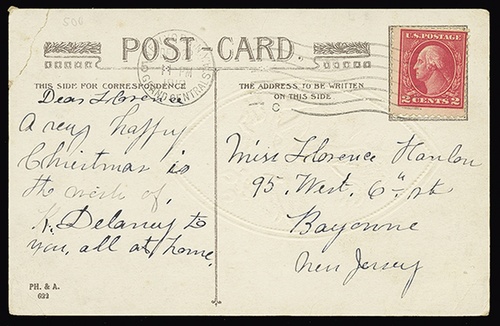 500
POST-CARD.
THIS SIDE FOR CORRESPONDENCE
THE ADDRESS TO BE WRITTEN
ON THIS SIDE
C
PM
GRAND CENTRAL STA.
U.S. POSTAGE
2 CENTS 2
Dear Florence
A very happy
Christmas is
the wish of,
K. Delaney to
you, all at home.
Miss Florence Hanlon
95. West. 6th st
Bayonne
New Jersey
PH. & A.
622